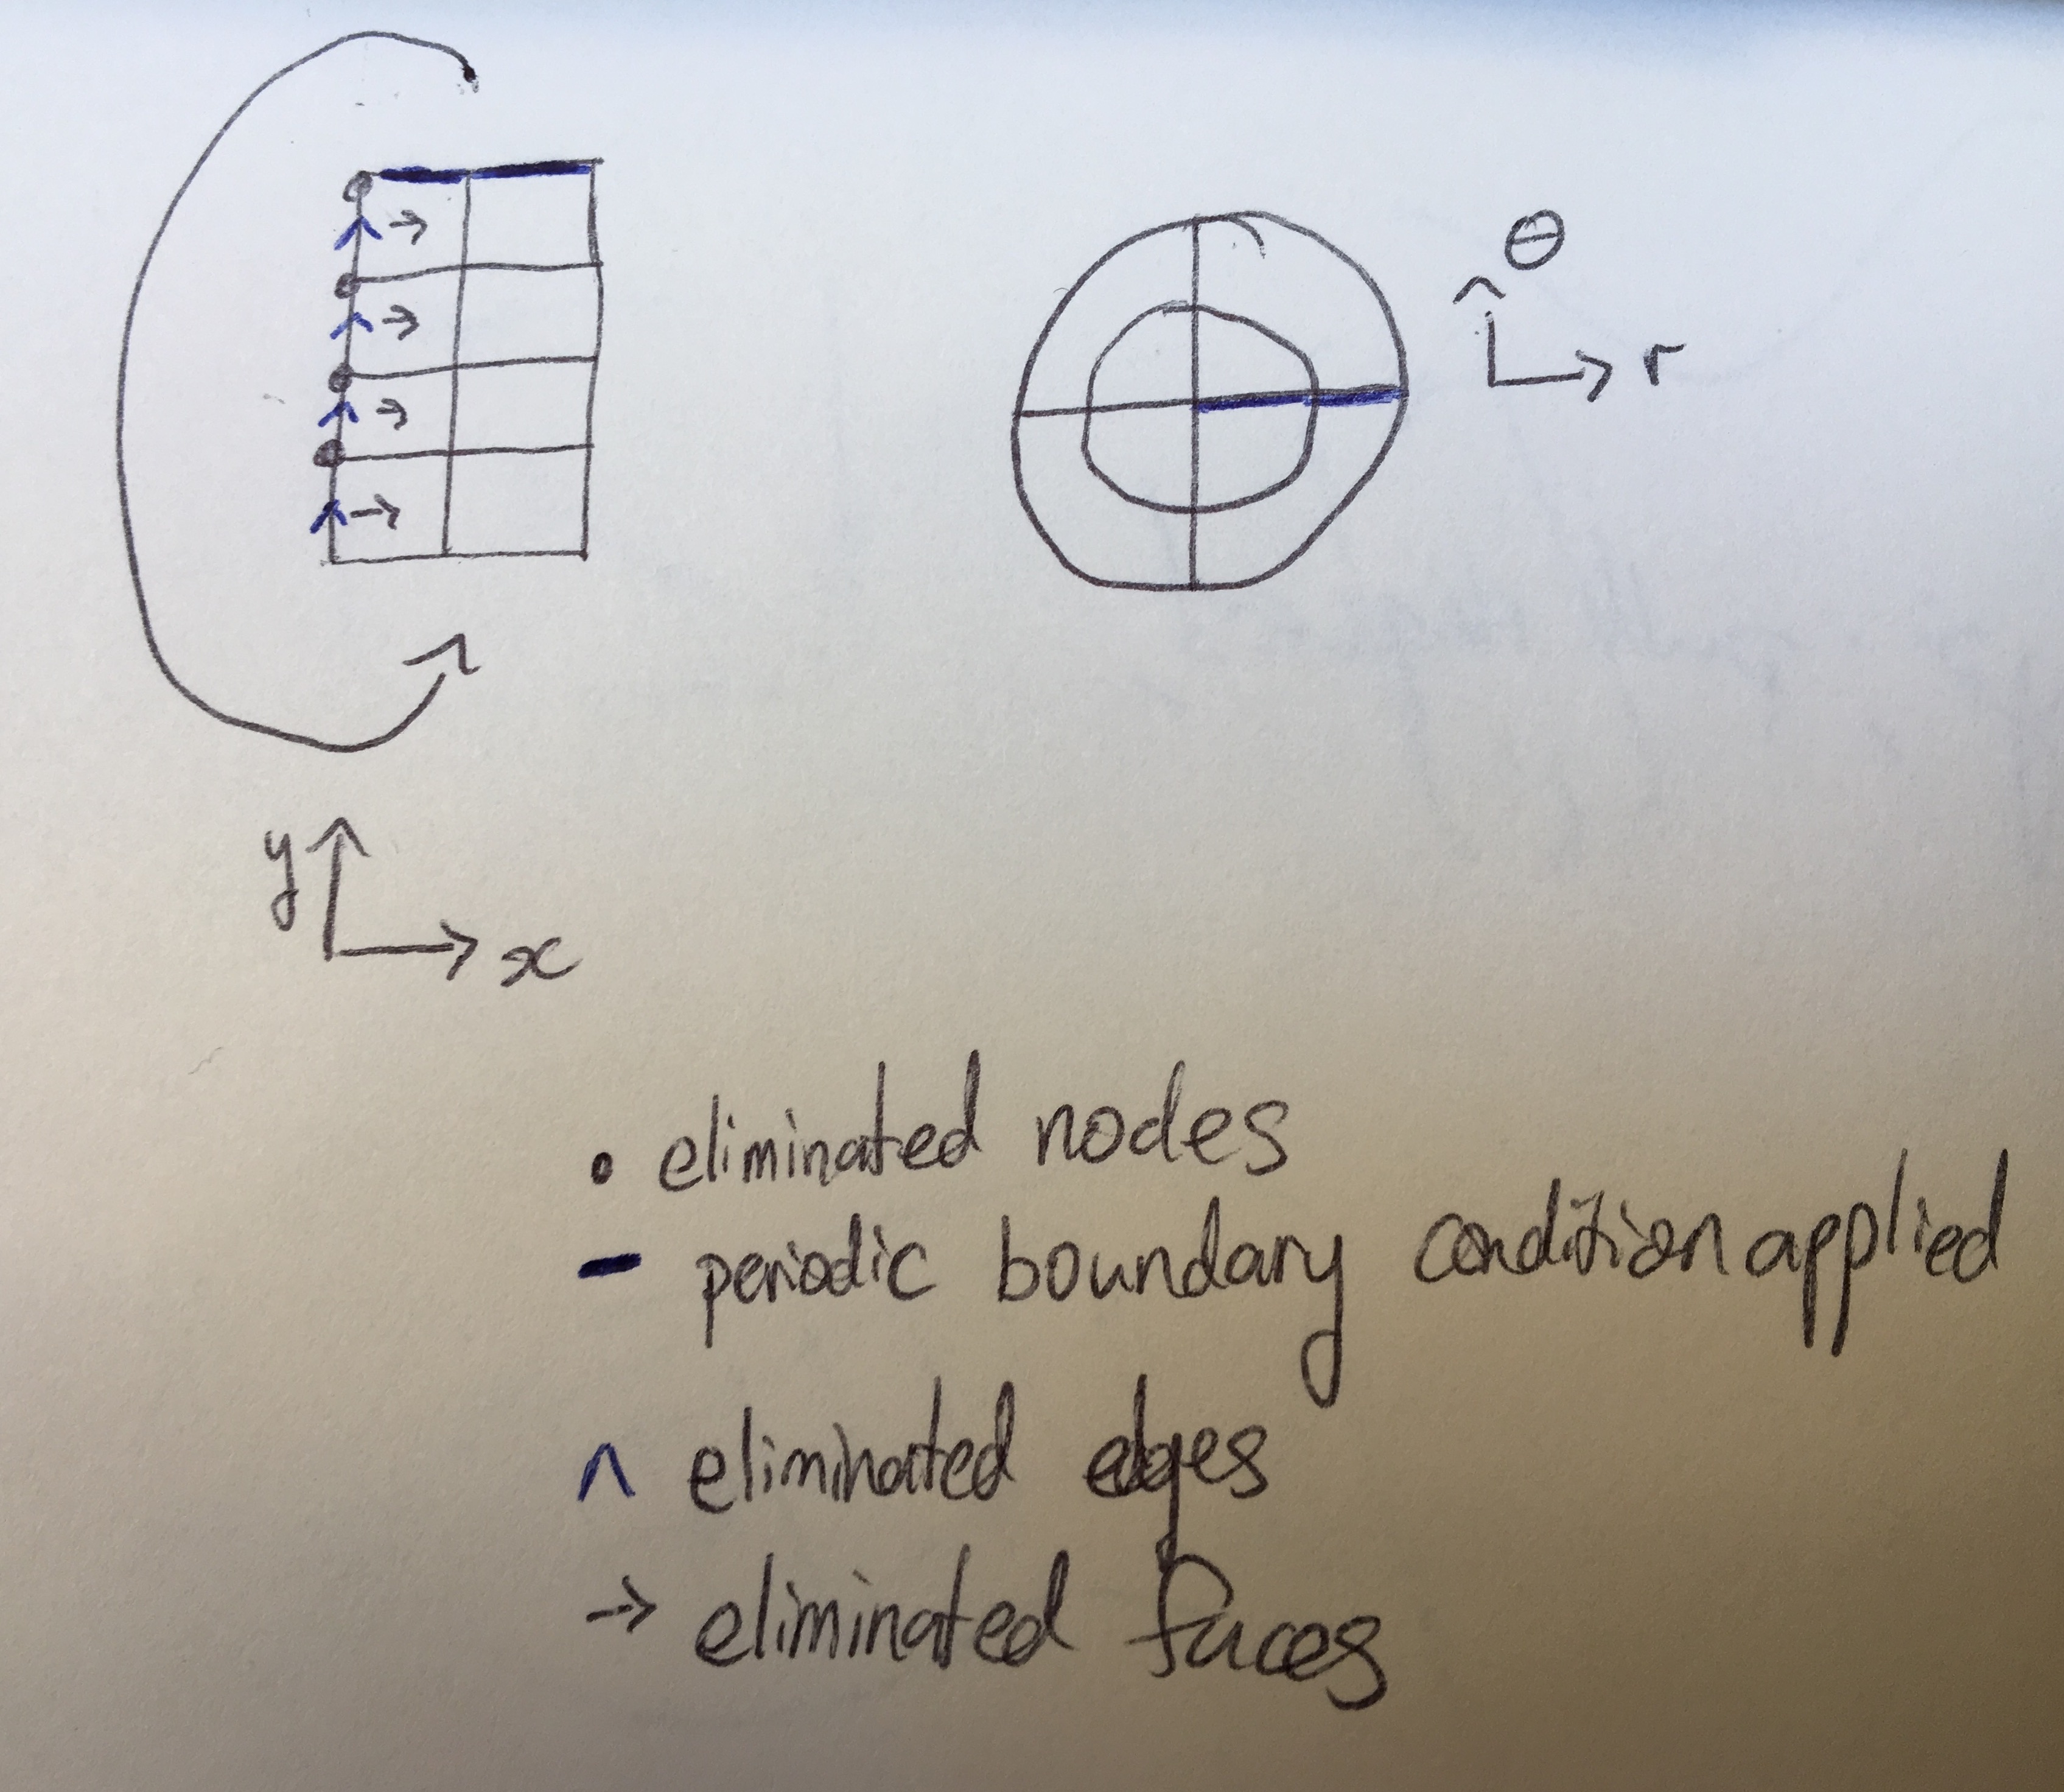 θ
r
y
x
• eliminated nodes
- periodic boundary condition applied
^ eliminated edges
→ eliminated faces